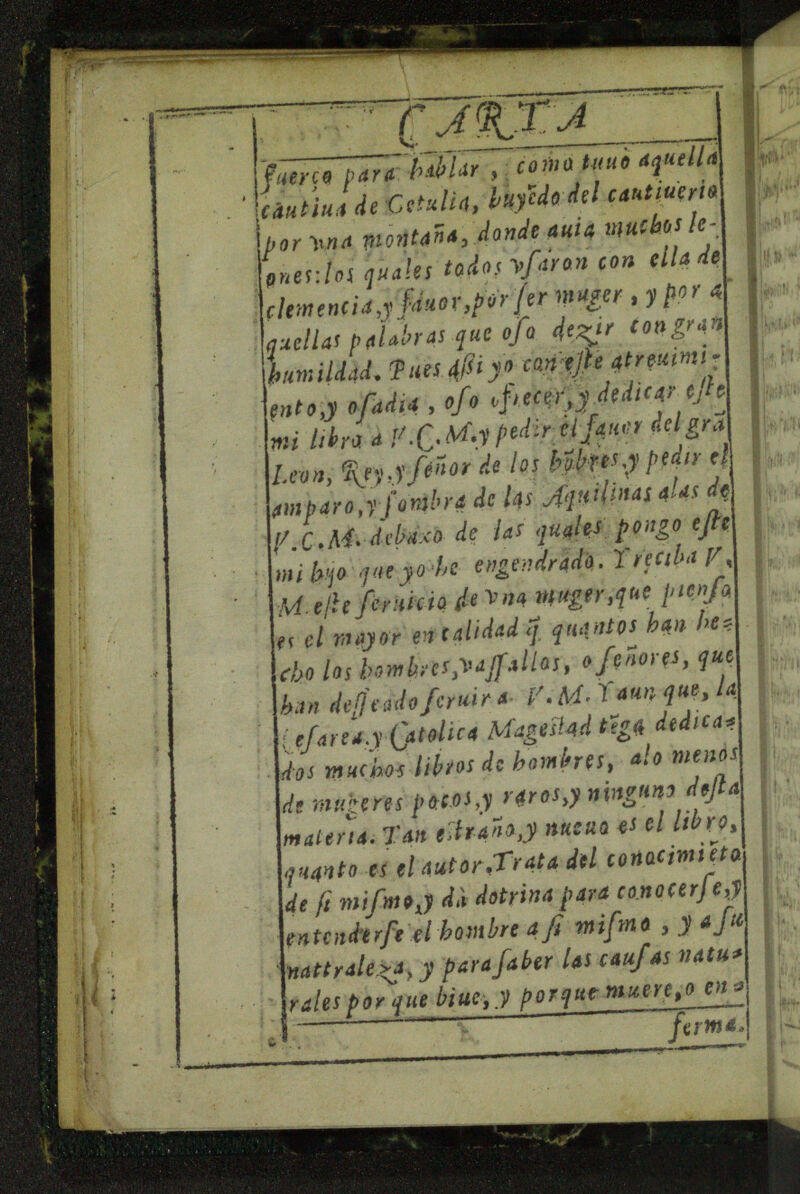 CARTA
fuerço para hablar, como tuuo aquella
cautiua de Getulia, huyẽdo del cautiuerio
por vna montaña, donde auia muchos le-
ones: los quales todos vſaron con ella de
clemencia, y fauor, por ſer muger, y por a
quellas palabras que oſo dezir con gran
humildad. Pues aſsi yo con eſte atreuimi-
ento, y oſadia, oſo ofrecer, y dedicar eſte
mi libro a V.C.M. y pedir el fauor del grã
Leon, Rey, y ſeñor de los hõbres, y pedir el
amparo, y ſombra de las Aquilinas alas de
V.C.M. debaxo de las quales pongo eſte
mi hijo que yo he engendrado. Y reciba V.
M. eſte ſeruicio de vna muger, que pienſo
es el mayor en calidad q̃ quantos han he-
cho los hombres, vaſſallos, o ſeñores, que
han deſſeado ſeruir a V.M. Y aun que, la
Ceſarea, y Catolica Mageſtad tẽga dedica-
dos muchos libros de hombres, alo menos
de mugeres pocos, y raros, y ninguno deſta
materia. Tan eſtraño, y nueuo es el libro,
quanto es el autor. Trata del conocimiẽto
de ſi miſmo, y dà dotrina para conocerſe, y
entenderſe el hombre a ſi miſmo, y a ſu
nattraleza, y para ſaber las cauſas natu-
rales por que biue, y porque muere, o en-
ferma.